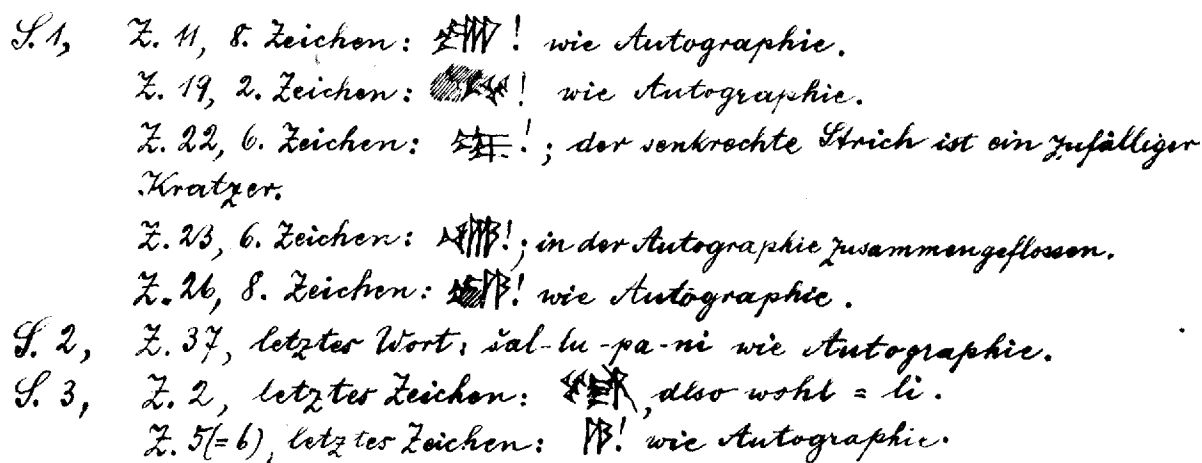 S. 1, Z. 11, 8. Zeichen: ! wie Autographie.
Z. 19, 2. Zeichen: ! wie Autographie.
Z. 22, 6. Zeichen: ! ; der senkrechte Strich ist ein zufälliger
Kratzer.
Z. 23, 6. Zeichen: ! ; in der Autographie zusammengeflossen.
Z. 26, 8. Zeichen: ! wie Autographie.
S. 2, Z. 37, letztes Wort: šal-lu-pa-ni wie Autographie.
S. 3, Z. 2, letztes Zeichen: , also wohl = li.
Z. 5(=6), letztes Zeichen: ! wie Autographie.